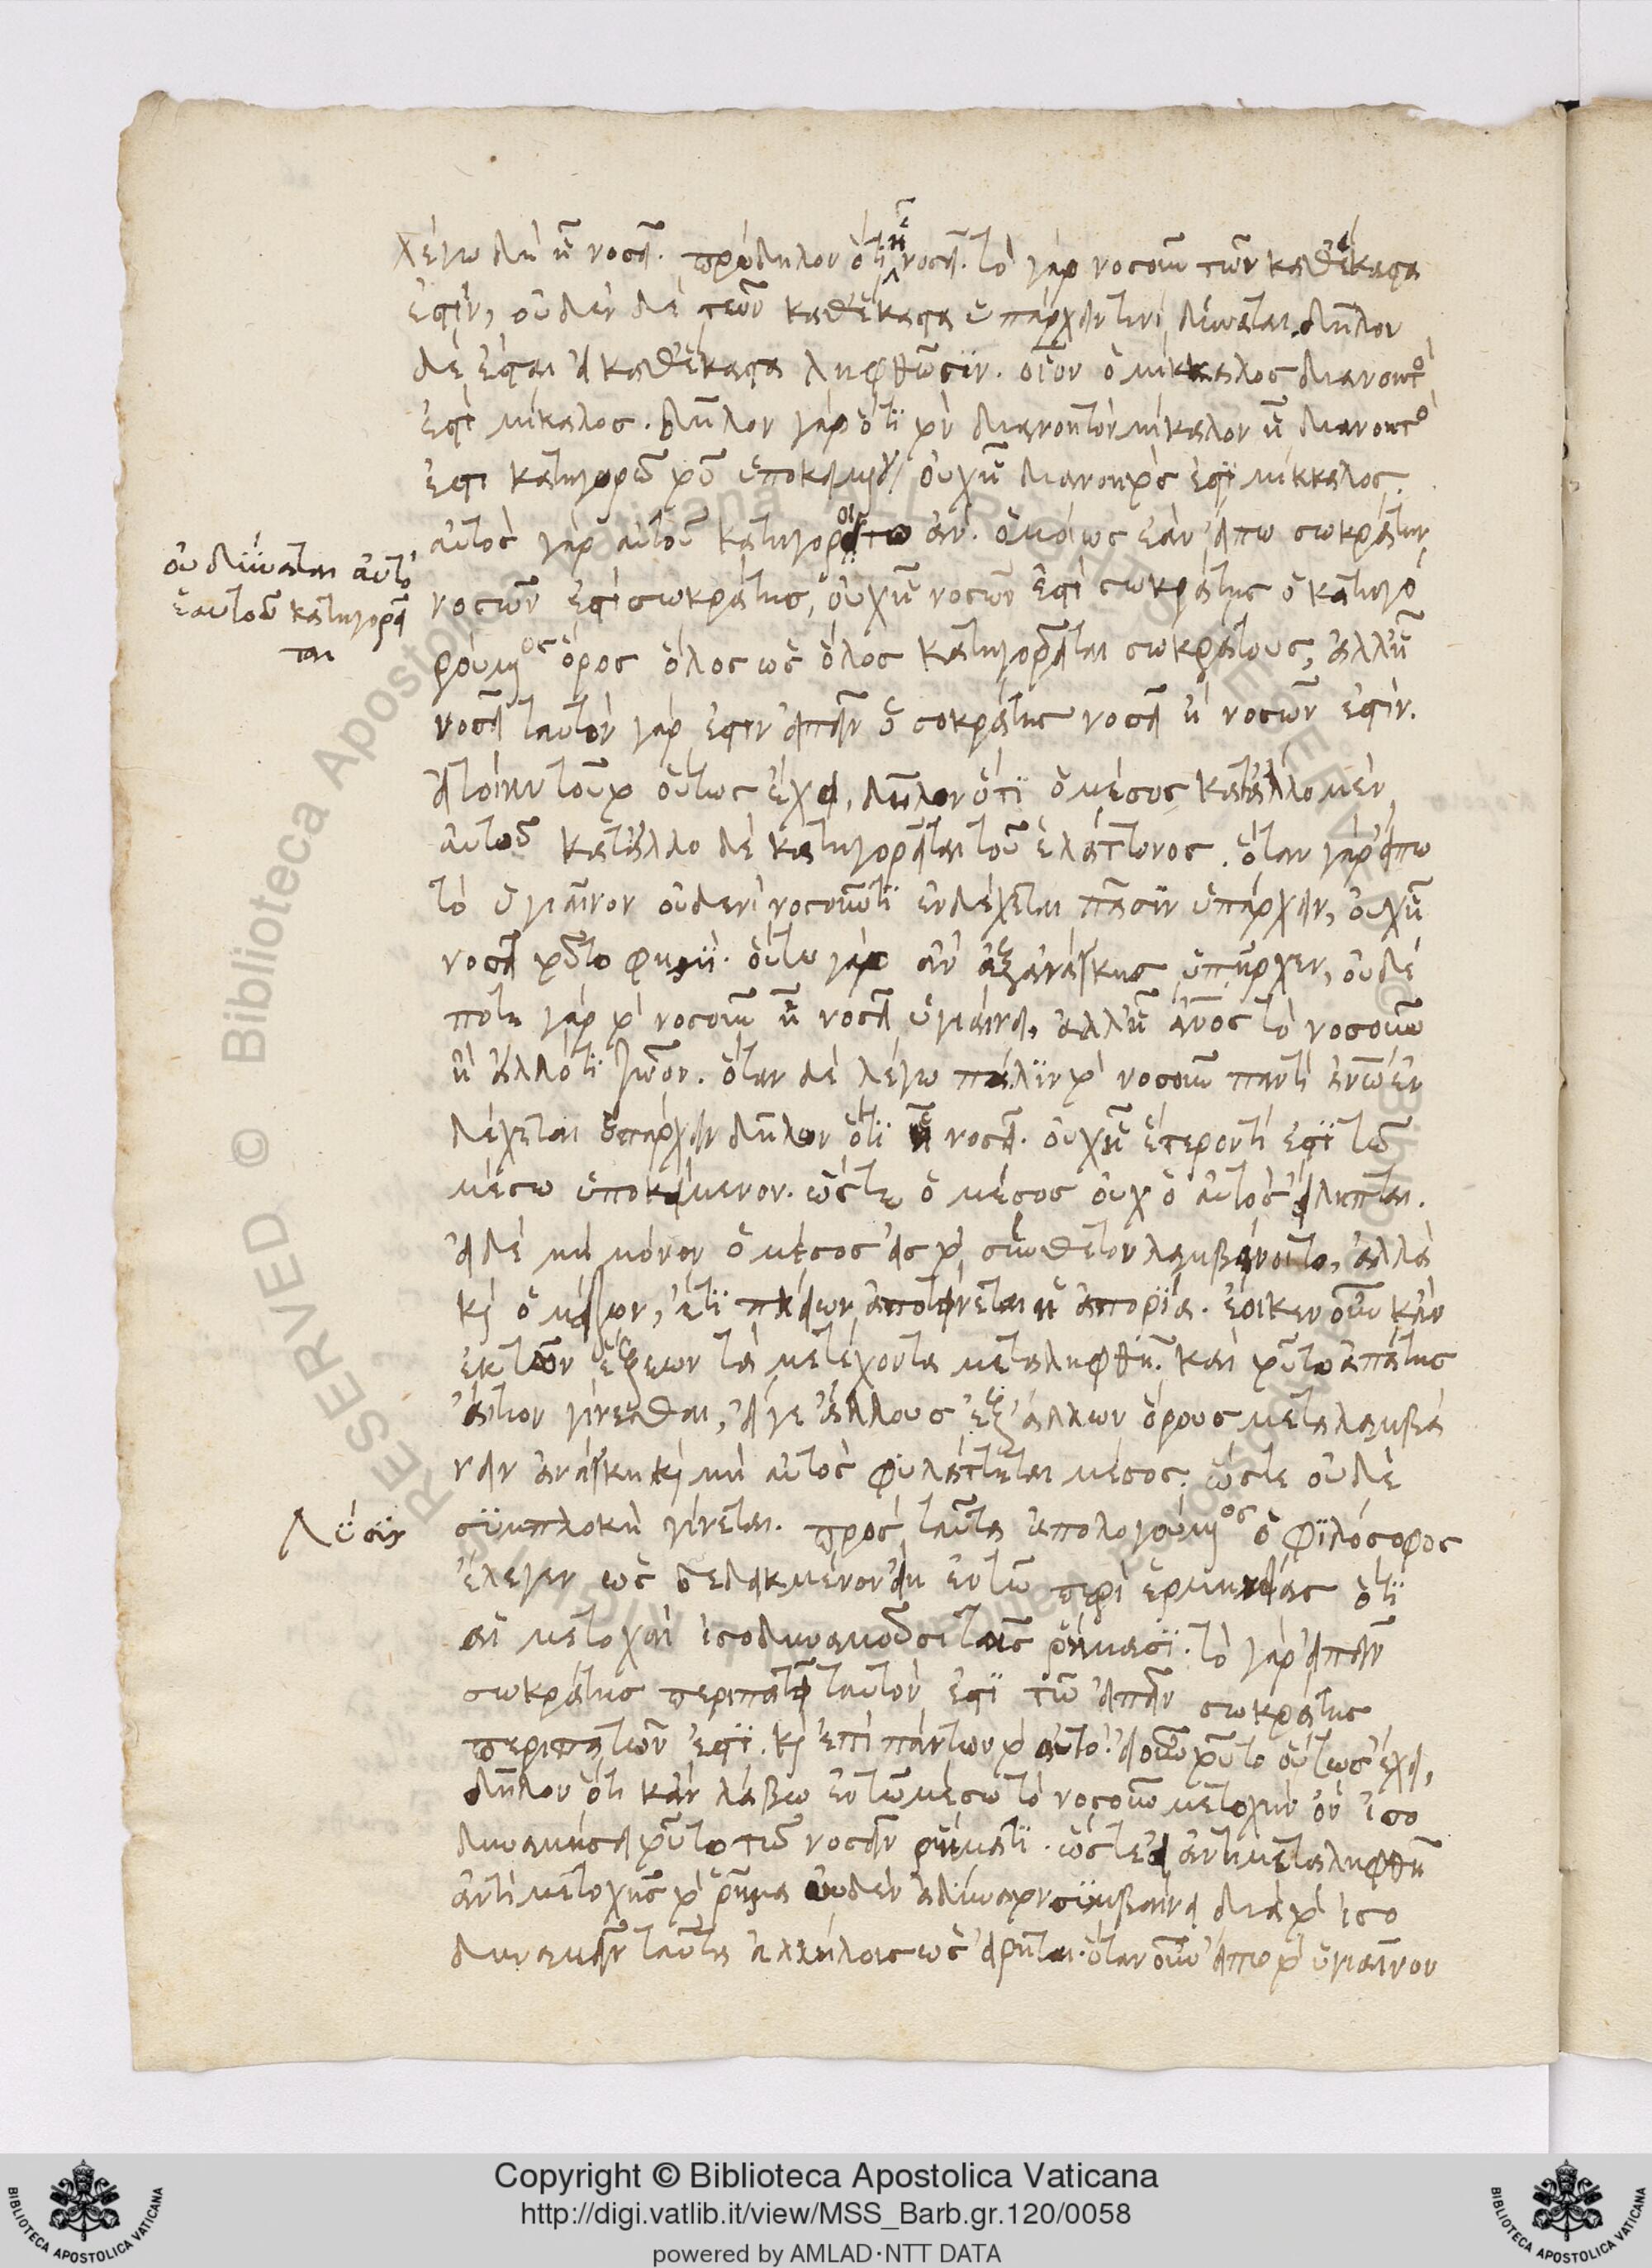 λέγω δὴ ᾗ νοσεῖ. πρόδηλον ὅτι ᾗ νοσεῖ. τὸ γὰρ νοσοῦν τῶν καθέκαστα
ἐστίν, οὐδὲν δὲ τῶν καθέκαστα ὑπάρχειν τινὶ δύναται. δῆλον
δὲ ἔσται εἰ καθέκαστα ληφθῶσιν. οἷον ὁ μίκκαλος διανοητὸ
ἐστὶ μίκαλος. δῆλον γὰρ ὅτι τὸ διανοητὸν μίκαλον ᾗ διανοητὸ
ἐστι κατηγορῶ τοῦ ὑποκειμένου οὐχ ᾗ διανοητός ἐστι μίκκαλος.
αὐτὸς γὰρ αὐτοῦ κατηγοροῖτο ἄν. ὁμοίως ἐὰν εἴπω σωκράτην
νοσῶν ἐστὶ σωκράτης, οὐχ ᾗ νοσῶν ἐστὶ σωκράτης ὁ κατηγο
ρούμενος ὅρος ὅλος ὡς ὅλος κατηγορεῖται σωκράτους, ἀλλ' ᾗ
νοσεῖ ταυτὸν γάρ ἐστιν εἰπεῖν ὁ σοκράτης νοσεῖ ἢ νοσῶν ἐστίν.
εἰ τοίνυν τοῦτο οὕτως ἔχει, δῆλον ὅτι ὁ μέσος κατ' ἄλλο μὲν
αὐτοῦ κατ' ἄλλο δὲ κατηγορεῖται τοῦ ἐλάττονος. ὅταν γὰρ εἴπω
τὸ ὑγιαῖνον οὐδενὶ νοσοῦντι ἐνδέχεται πᾶσιν ὑπάρχειν, οὐχ ᾗ
νοσεῖ τοῦτο φημί. οὕτω γὰρ ἂν ἐξ ἀνάγκης ὑπῆρχεν, οὐδέ
ποτε γὰρ τὸ νοσοῦν ᾗ νοσεῖ ὑγιαίνει, ἀλλ' ᾗ ἄνος τὸ νοσοῦν
ἢ ἄλλό τι ζῶον. ὅταν δὲ λέγω πάλιν τὸ νοσοῦν παντὶ ἀνω ἐν
δέχεται ὑπάρχειν δῆλον ὅτι ᾗ νοσεῖ. οὐχ ᾗ ἕτερόν τι ἐστὶ τῶ
μέσω ὑποκείμενον. ὥστε ὁ μέσος οὐχ ὁ αὐτὸς εἴληπται.
εἰ δὲ μὴ μόνον ὁ μέσος εἰς τὸ σύνθετον λαμβάνοιτο, ἀλλὰ
κὶ ὁ μείζων, ἔτι πλείων ἀποτείνεται ἡ ἀπορία. ἔοικεν οὖν κἂν
ἐκ τῶν ἕξεων τὰ μετέχοντα μεταληφθῆ. καὶ τοῦτο ἀπάτης
αἴτιον γίνεσθαι, εἴγε ἄλλους ἐξ ἄλλων ὅρους μεταλαμβά
νειν ἀνάγκη κὶ μὴ αὐτὸς φυλάττηται μέσος. ὥστε οὐδὲ
συμπλοκὴ γίνεται. πρὸς ταῦτα ἀπολογούμενος ὁ φιλόσοφος
ἔλεγεν ὡς δεδειγμένον εἴη ἐν τῶ περὶ ἑρμηνείας ὅτι
αἱ μετοχαὶ ἰσοδυναμοῦσι ταῖς ῥήμασι. τὸ γὰρ εἰπεῖν
σωκράτης περιπατεῖ ταυτὸν ἐστὶ τῶ εἰπεῖν σωκράτης
περιπατῶν ἐστὶ. κὶ ἐπὶ πάντων τὸ αὐτό. εἰ οὖν τοῦτο οὕτως ἔχει,
δῆλον ὅτι κἂν λάβω ἐν τῶ μέσω τὸ νοσοῦν μετοχὴν ὂν ἰσο
δυναμήσει τοῦτο τῶ νοσεῖν ῥήματι. ὥστε εἰ ἀντιμεταληφθῆ
ἀντὶ μετοχῆς τὸ ῥῆμα οὐδὲν ἀδύνατον συμβαίνει διὰ τὸ ἰσο
δυναμεῖν ταῦτα ἀλλήλοις ὡς εἴρηται. ὅταν οὖν εἴπω τὸ ὑγιαῖνον
οὐ δύναται αὐτὸ
ἑαυτοῦ κατηγορεῖ
ται
Λύσιν
RESERVED © Biblioteca Apostolica Vaticana ALL RIGHTS RESERVED
Copyright © Biblioteca Apostolica Vaticana
http://digi.vatlib.it/view/MSS_Barb.gr.120/0058
powered by AMLAD·NTT DATA
BIBLIOTECA APOSTOLICA VATICANA
BIBLIOTECA APOSTOLICA VATICANA